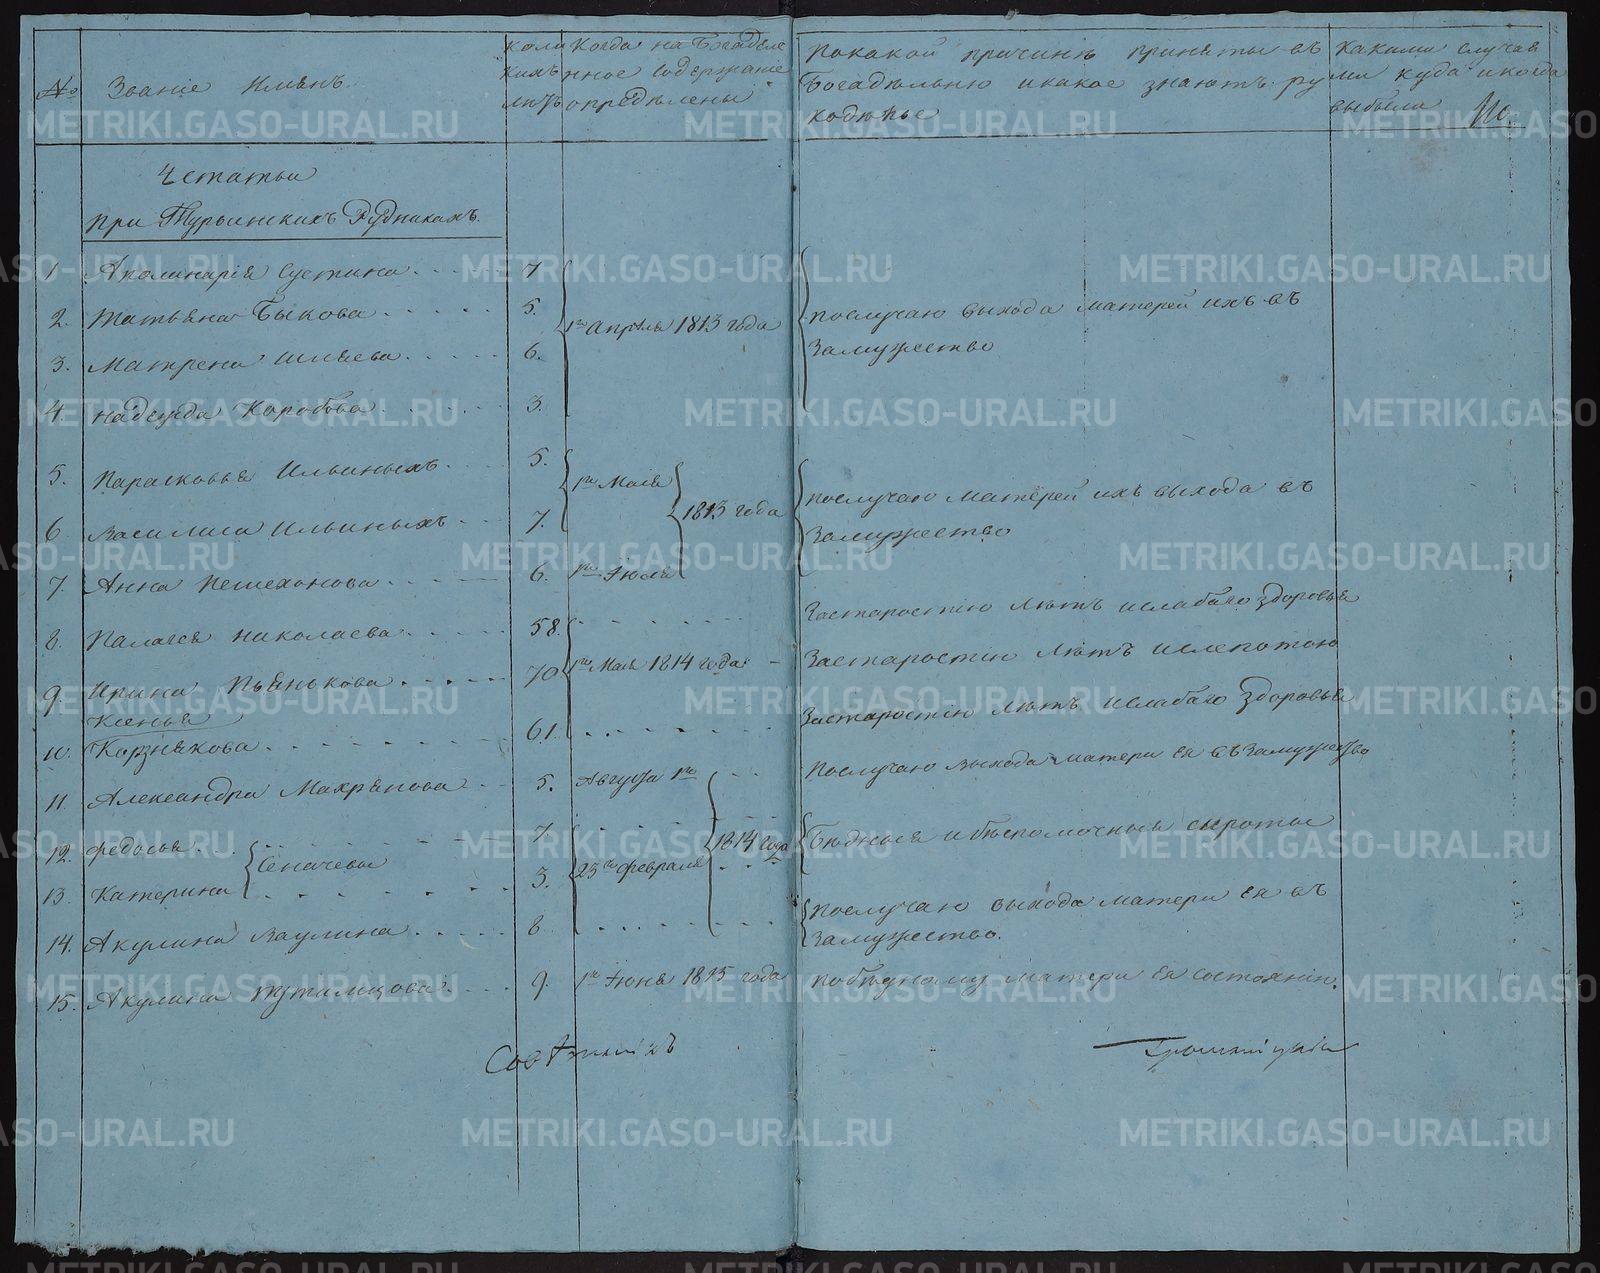 №
Званіе Имянъ.
коли
кихъ
лѣтъ
Когда на Богадѣле
нное Содержаніе
опредѣлены
Покакой причинѣ приняты въ
Богадѣльню икакое знаютъ ру
кодѣлье
Какими случая
ми куда икогда
выбыли
4 статьи
при Турьинскихъ Рудникахъ.
1 Аполинарія Сустина 7
2. Татьяна Быкова 5.
1го Апреля 1813 года
послучаю выхода матерей ихъ въ
Замужество
3. Матрена Шляева 6.
4 Надежда Коробова 3.
5. Парасковья Ильиныхъ 5.
1го Маія
1813 года
послучаю матерей ихъ выхода въ
Замужество
6 Василиса Ильиныхъ 7.
7. Анна Пешехонова 6. 1го Іюля
8. Палагея Николаева 58. Застаростію лѣтъ ислабаго здоровья
9. Ирина Пьянькова 70 1го Маія 1814 года Застаростію лѣтъ ислепотою
Ксенья
10. Корзнякова 61. Застаростію лѣтъ ислабаго здоровья
11 Александра Махрянова 5. Августа 1го Послучаю выхода матери ея въ Замужество
12. Федосья 7.
Сеначевы
1814 года
Бѣдныя ибѣспомочныя сироты
13. Катерина 3. 23го февраля
14. Акулина Ваулина 8
послучаю выхода матери ея въ
Замужество.
15. Акулина Путимцова 9. 1го Іюня 1815 года побѣдному матери ея состоянію.
Совѣтникъ
METRIKI.GASO-URAL.RU